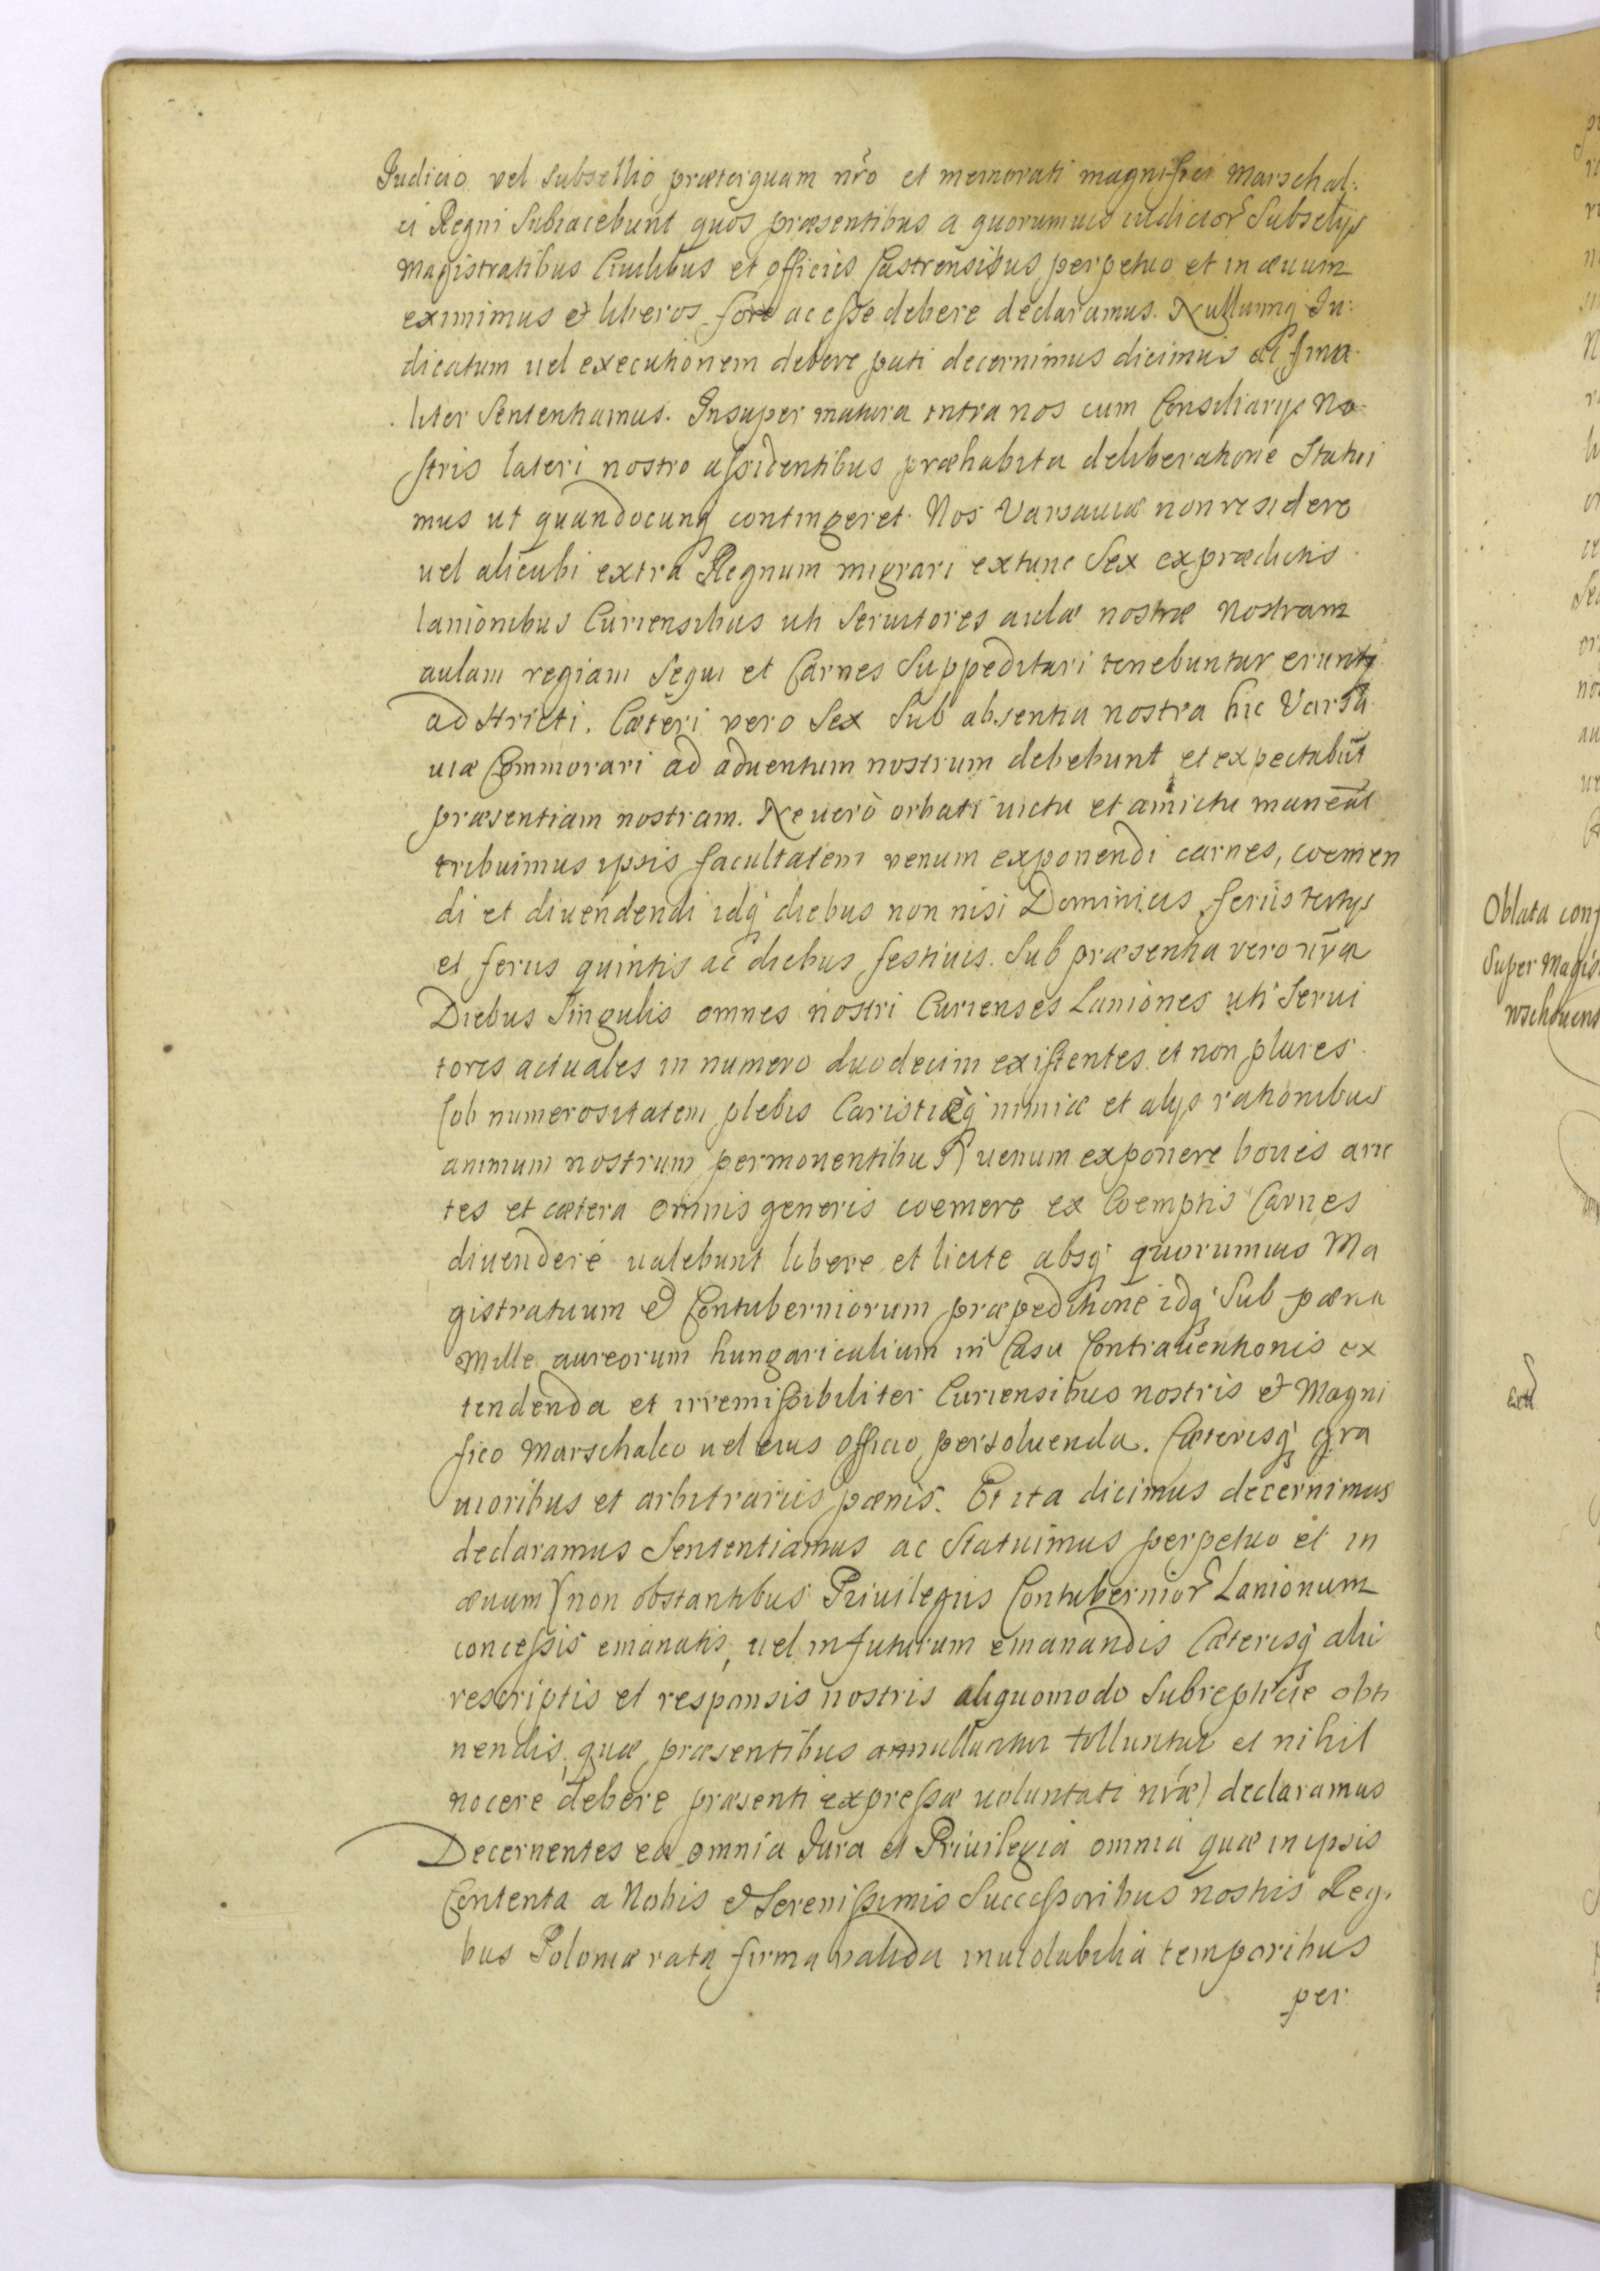 Iudicio vel subsellio præterquam nr̃o et memorati magnifici Marschal:
ci Regni Subiacebunt quos præsentibus a quorumuis iudicior̃ Subselijs
Magistratibus Ciuilibus et officijs Castrensibus perpetuo et in æuum
eximimus et liberos fore ac eſſe debere declaramus. Nullumq́ Iu:
dicatum uel executionem debere pati decernimus dicimus ac fina:
liter Sententiamus. Insuper matura intra nos cum Consiliarijs No
ſtris lateri nostro aſſidentibus præhabita deliberatione Statui
mus ut quandocunq́ contingeret Nos Varsauiæ non residere
uel alicubi extra Regnum migrari extunc Sex ex prædictis
lanionibus Curiensibus uti Seruitores aulæ nostræ Nostram
aulam regiam Sequi et Carnes Suppeditari tenebuntur eruntq́
adstricti. Cæteri vero Sex Sub absentia nostra hic Varsa
uiæ Commorari ad aduentum nostrum debebunt et expectabũt
præsentiam nostram. Ne uerò orbati uictu et amictu maneãt
tribuimus ipsis facultatem venum exponendi carnes, coemen
di et diuendendi idq́ diebus non nisi Dominicis ferijs tertijs
et ferijs quintis ac diebus festiuis. Sub præsentia vero nr̃a
Diebus Singulis omnes nostri Curienses Laniones uti Serui
tores actuales in numero duodecim exiſtentes et non plures
(ob numerositatem plebis Caristiæq́ nimiæ et alijs rationibus
animum nostrum permouentibus) uenum exponere boues arie
tes et cætera omnis generis coemere ex Coemptis Carnes
diuendere ualebunt libere et licite absq́ quorumuis Ma
gistratuum et Contuberniorum præpeditione idq́ Sub pæna
Mille aureorum hungaricalium in Casu Contrauentionis ex
tendenda et irremiſſibiliter Curiensibus nostris et Magni
fico Marschalco uel eius officio persoluenda. Cæterisq́ gra
uioribus et arbitrarijs pænis. Et ita dicimus decernimus
declaramus Sententiamus ac Statuimus perpetuo et in
æuum (non obstantibus Priuilegijs Contubernior̃ Lanionum
conceſſis emanatis, uel in futurum emanandis Cæterisq́ alij
rescriptis et responsis nostris aliquomodo Subrepticie obti
nendis, quæ præsentibus annullantur tolluntur et nihil
nocere debere præsenti expreſſæ uoluntati nr̃æ) declaramus
Decernentes ea omnia Iura et Priuilegia omnia quæ in ipsis
Contenta a Nobis et Sereniſſimis Succeſſoribus nostris Regi
bus Poloniæ rata firma valida inuiolabilia temporibus
per
Oblata conf
Super Magis